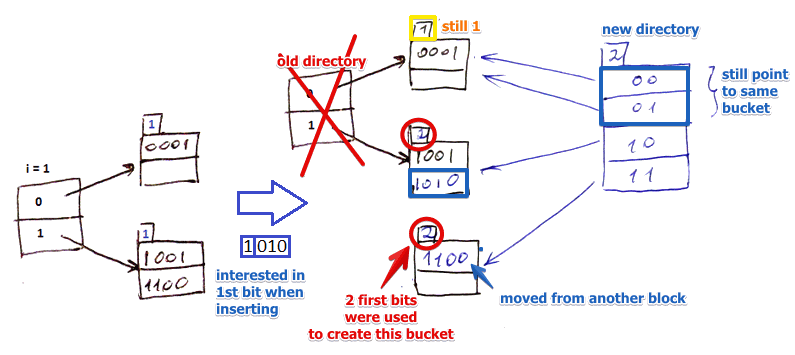 i = 1
0
1
1
0001
1
1001
1100
1010
interested in
1st bit when
inserting
old directory
0
1
1
still 1
0001
2
1001
1010
2
1100
2 first bits
were used
to create this bucket
moved from another block
new directory
2
00
01
10
11
still point
to same
bucket